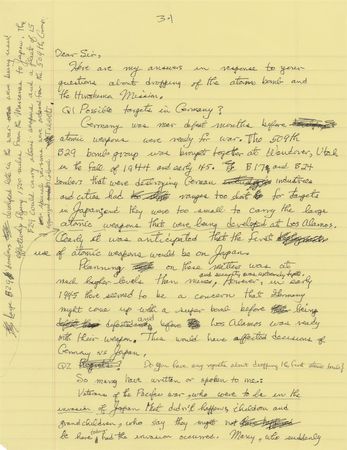 31
Dear Sir,
Here are my answers in response to your
questions about dropping of the atom bomb and
the Hiroshima Mission.
Q1 Possible targets in Germany?
Germany was near defeat months before
atomic weapons were ready for war. The 509th
B29 bomb group was brought together at Wendover, Utah
in the Fall of 1944 and early 45. The B17s and B24
bombers that were destroying German industries
and cities had ranges too short for targets
in Japan and they were too small to carry the large
atomic weapons that were being developed at Los Alamos.
Clearly it was anticipated that the
use of atomic weapons would be on Japan.
Planning on these matters was at
much higher levels than mine, and secrecy was extremely tight. However, in early
1945 there seemed to be a concern that Germany
might come up with a super bomb before being
defeated and before Los Alamos was ready
with their weapon. This would have affected decisions of
Germany vs Japan.
Q2 Do you have any regrets about dropping the first atomic bomb?
So many have written or spoken to me:
Veterans of the Pacific war, who were to be in the
invasion of Japan that didn't happen, children and
grandchildren, who say they might not
be here today had the invasion occurred. Many, who suddenly
The B29 developed late in the war were being used
flying 1500 miles from the Marianas to Japan. The
B29 could carry atomic weapons and a fleet of 15
were selected for the 509th Comp.